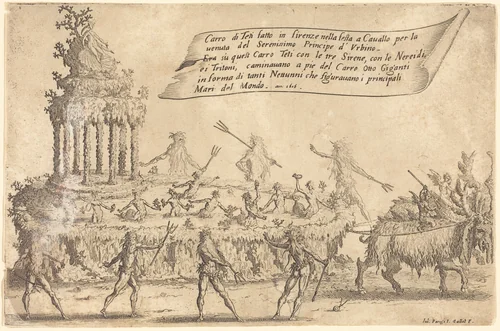 Carro di Teti fatto in firenze nella festa a Cavallo per la
venuta del Serenissimo Principe d' Vrbino.
Era su questo Carro Teti con le tre Sirene, con le Nereidi,
e i Tritoni, caminauano a pie del Carro Otto Giganti
in forma di tanti Nettunni che figurauano i principali
Mari del Mondo. an. 1616.
Iul. Parigi I. Callot F.